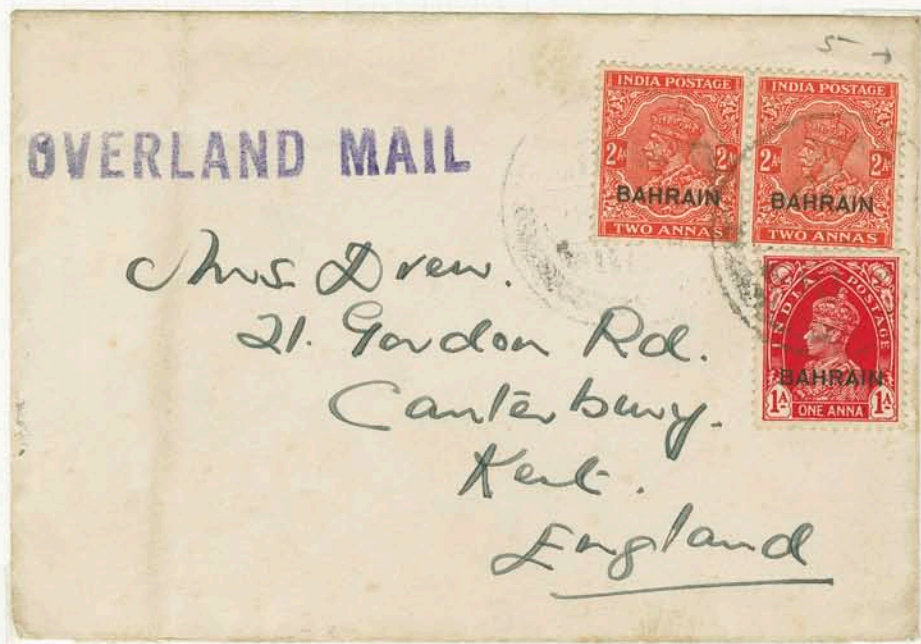 5
OVERLAND MAIL
INDIA POSTAGE
2As 2As
BAHRAIN
TWO ANNAS
INDIA POSTAGE
2As 2As
BAHRAIN
TWO ANNAS
INDIA POSTAGE
BAHRAIN
1A 1A
ONE ANNA
Mrs. Drew.
21. Gordon Rd.
Canterbury.
Kent.
England